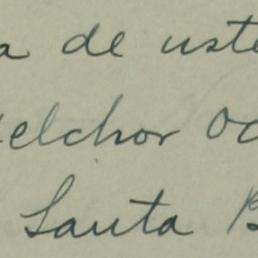 a de uste
elchor Oc
Santa B